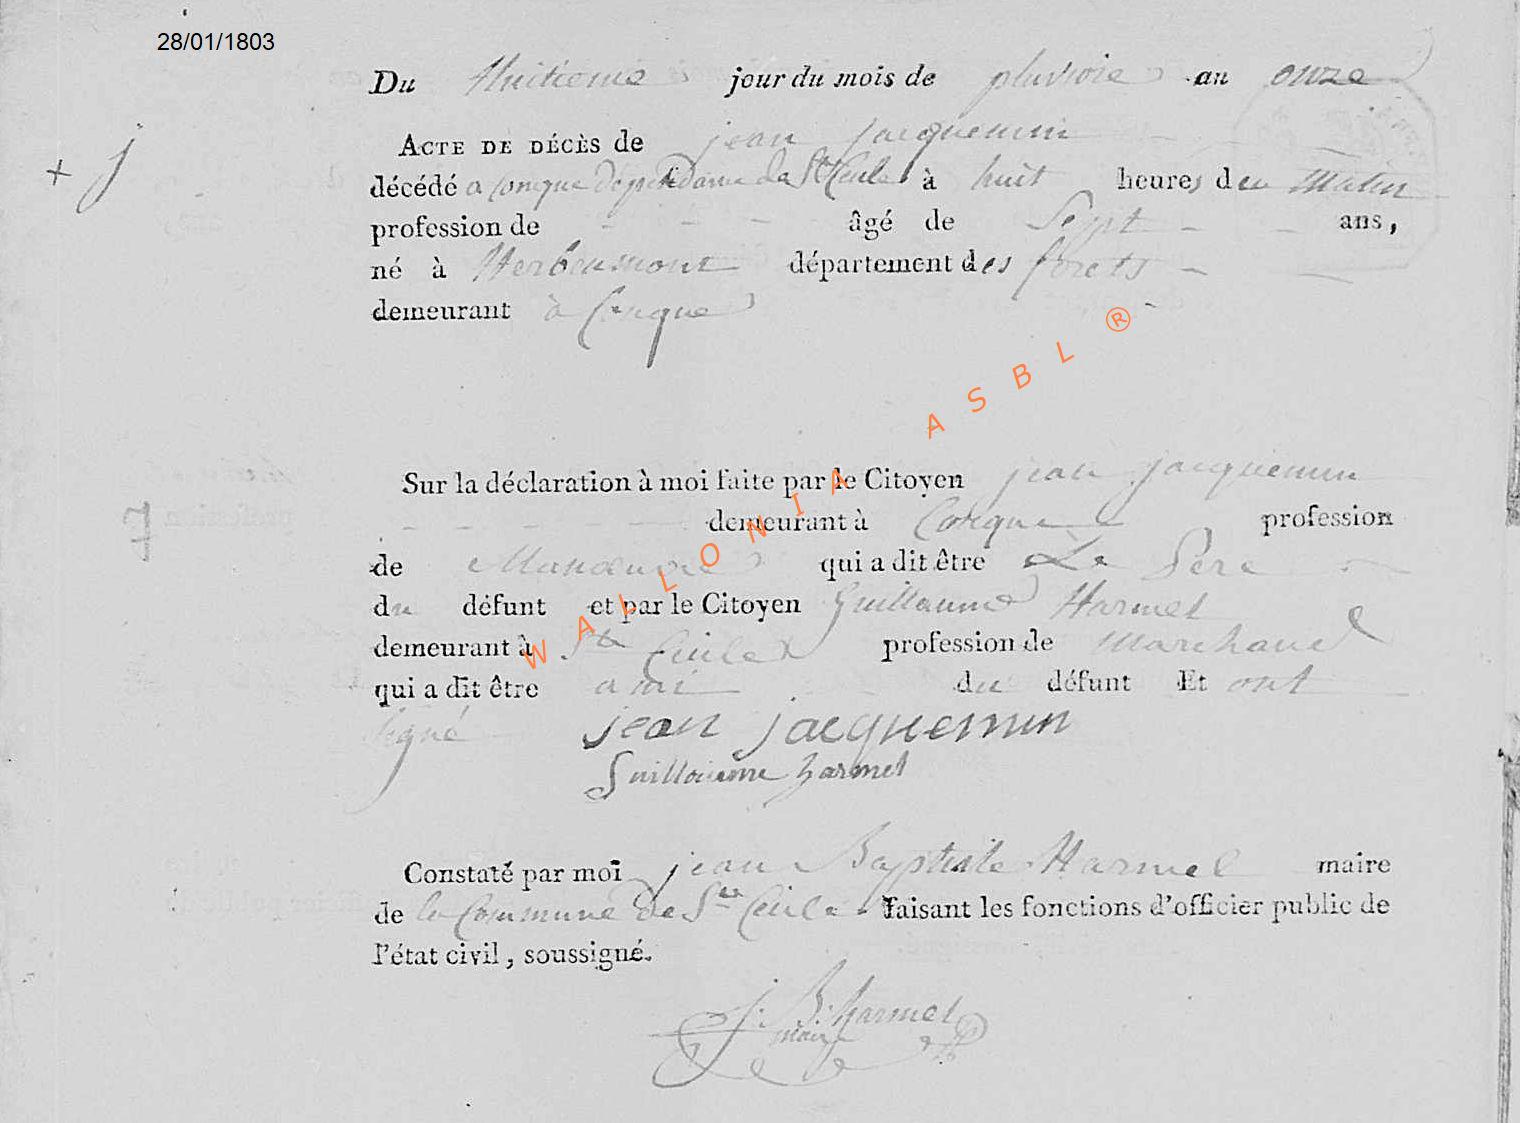 28/01/1803
Du Huitieme jour du mois de pluviose an onze
ACTE DE DÉCÈS de jean jacquemin
décédé a conque dependance de Ste Cecile à huit heures deu Matin
profession de âgé de Sept ans,
né à Herbeumont département des forets
demeurant à Conque
Sur la déclaration à moi faite par le Citoyen jean jacquemin
demeurant à Conque profession
de Manoeuvre qui a dit être Le Pere
du défunt et par le Citoyen Guillaume Harmel
demeurant à Ste Cecile profession de Marchand
qui a dit être ami du défunt Et ont
signé jean jacquemin
Guillaume harmel
Constaté par moi jean Baptiste Harmel maire
de la Commune de Ste Cecile faisant les fonctions d'officier public de
l'état civil, soussigné.
J. B. harmel
maire
WALLONIA ASBL ®